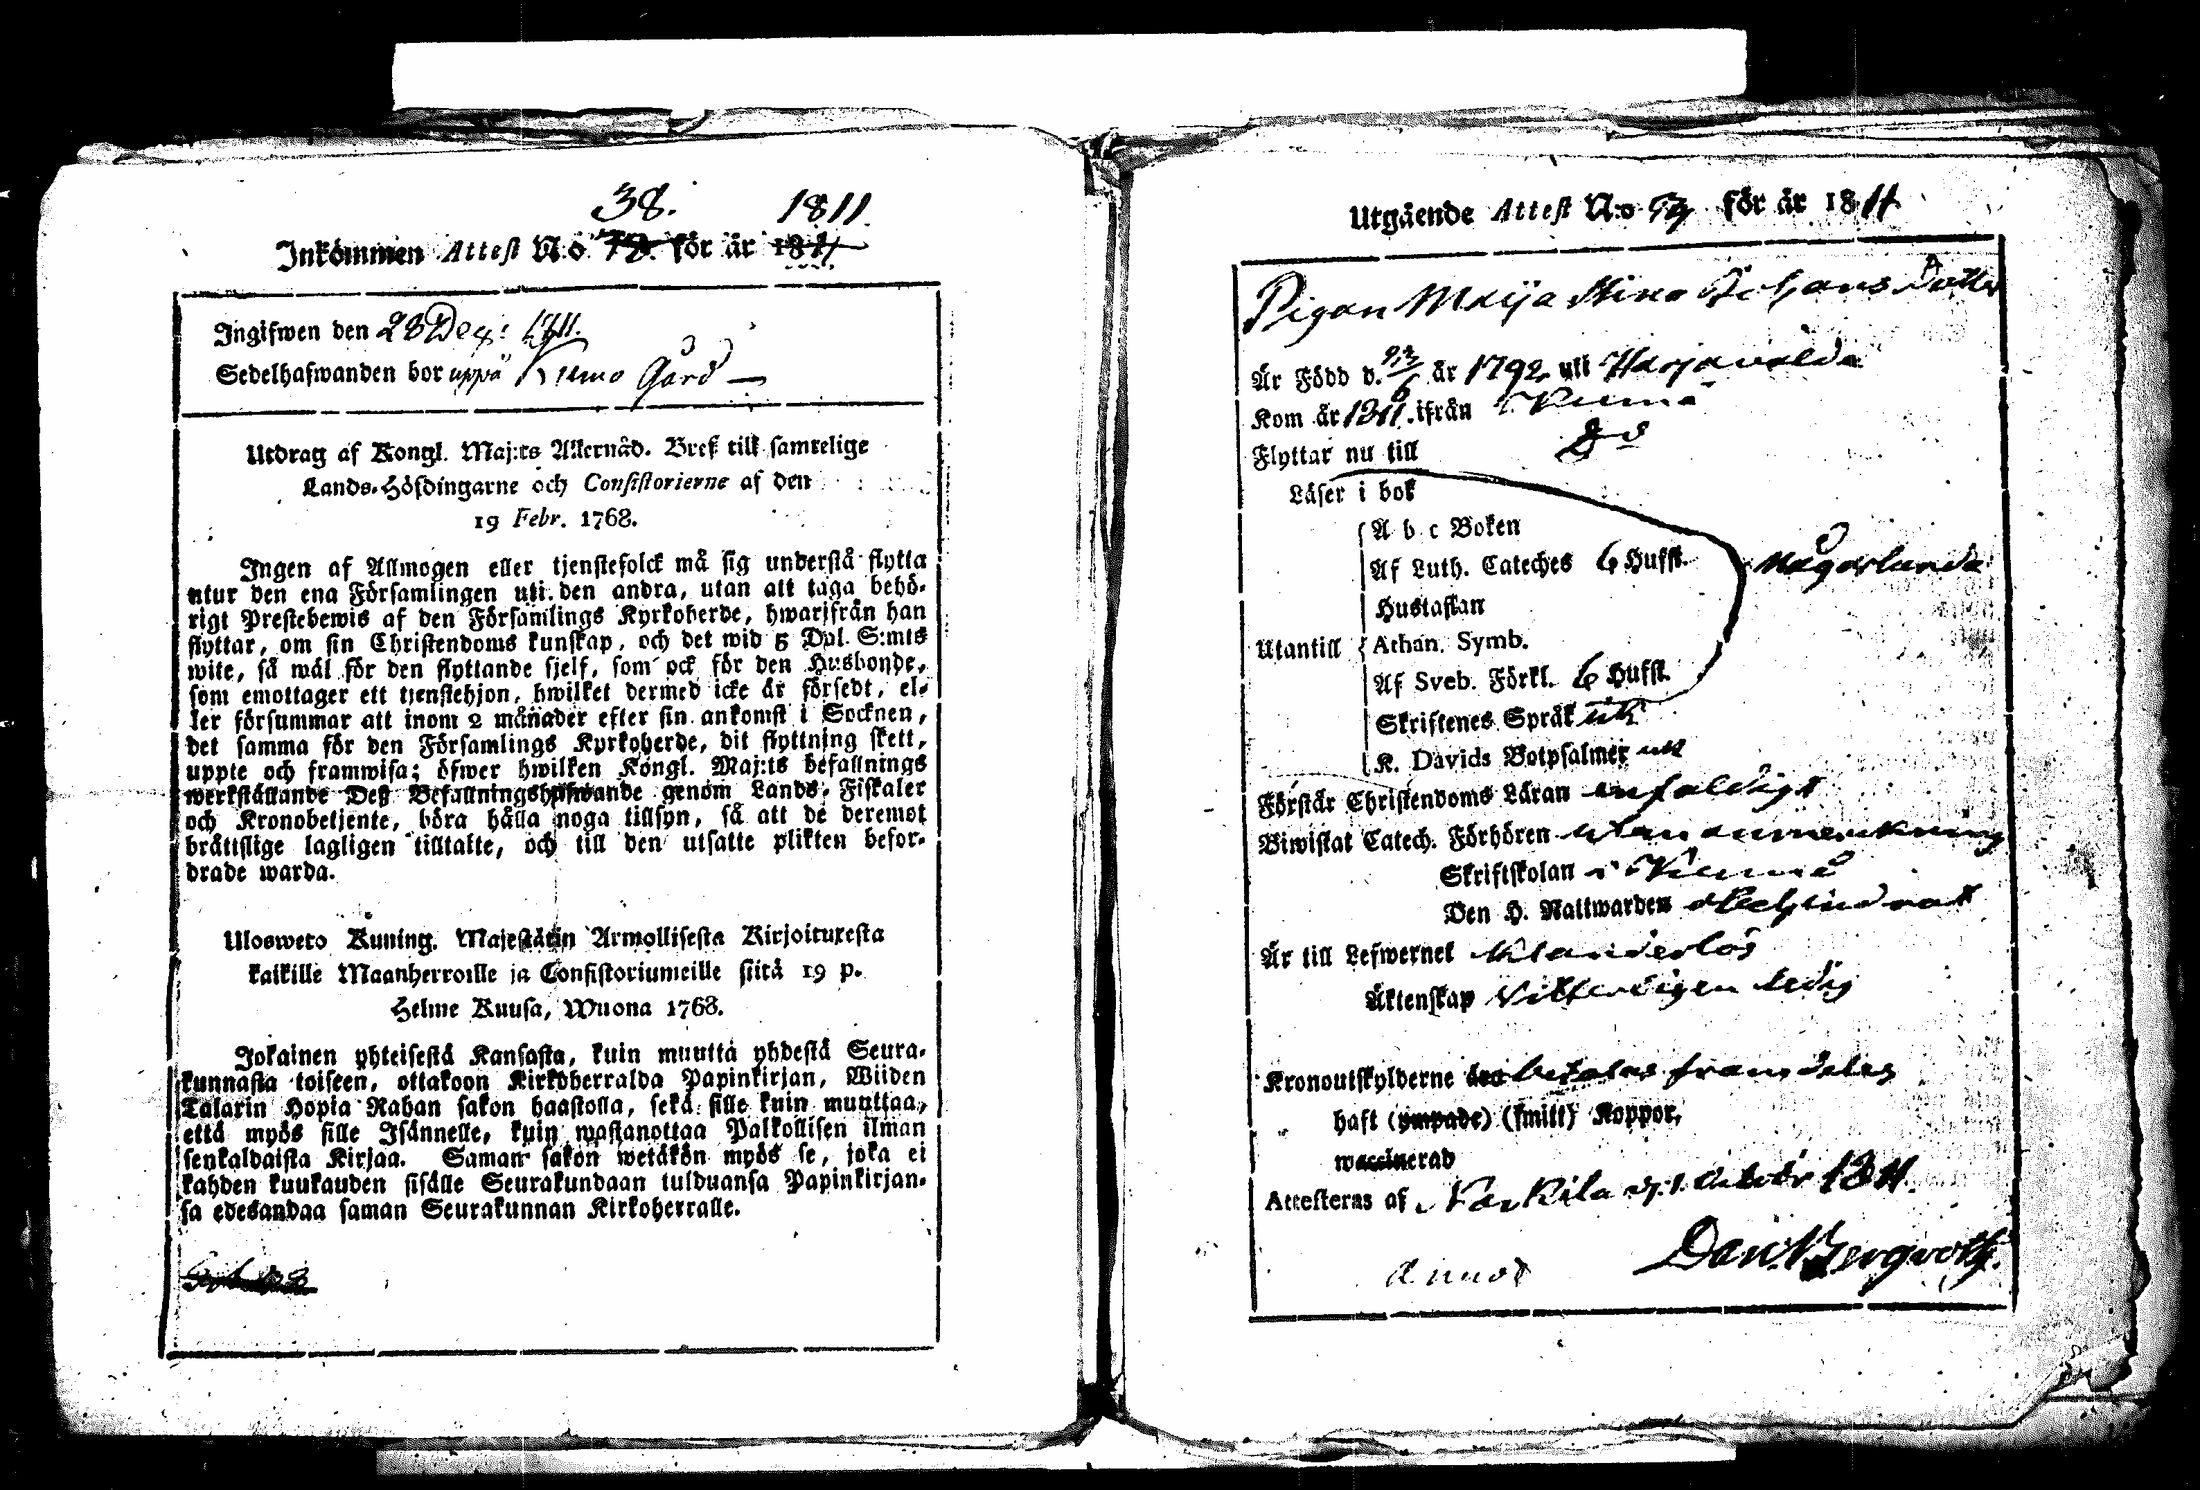 38. 1811.
Inkommen Attest N:o för år
Ingifwen den 28 Dec: 1811.
Sedelhafwanden bor uppå Kiumo Gård —
Utdrag af Kongl. Maj:ts Allernåd. Bref till samtelige
Lands-Höfdingarne och Consistorierne af den
19 Febr. 1768.
Ingen af Allmogen eller tjenstefolck må sig understå flytta
utur den ena Församlingen uti den andra, utan att taga behö-
rigt Prestebewis af den Församlings Kyrkoherde, hwarifrån han
flyttar, om sin Christendoms kunskap, och det wid 5 Dal. S:mts
wite, så wäl för den flyttande sjelf, som ock för den Husbonde,
som emottager ett tjenstehjon, hwilket dermed icke är försedt, el-
ler försummar att inom 2 månader efter sin ankomst i Socknen,
det samma för den Församlings Kyrkoherde, dit flyttning skett,
uppte och framwisa; öfwer hwilken Kongl. Maj:ts befallnings
werkställande Deß Befallningshafwande genom Lands-Fiskaler
och Kronobetjente, böra hålla noga tillsyn, så att de deremot
bråttslige lagligen tilltalte, och till den utsatte plikten befor-
drade warda.
Ulosweto Kuning. Majestätin Armollisesta Kirjoituxesta
kaikille Maanherroille ja Consistoriumeille siitä 19 p.
Helme Kuusa, Wuona 1768.
Jokainen yhteisestä Kansasta, kuin muutta yhdestä Seura-
kunnasta toiseen, ottakoon Kirkoherralda Papinkirjan, Wiiden
Talarin Hopia Rahan sakon haastolla, sekä sille kuin muuttaa,
että myös sille Isännelle, kuin wastanottaa Palkollisen ilman
senkaldaista Kirjaa. Saman sakon wetäkön myös se, joka ei
kahden kuukauden sisälle Seurakundaan tulduansa Papinkirjan-
sa edesandaa saman Seurakunnan Kirkoherralle.
Utgående Attest N:o för år 1811
Pigan Maija Stina Johans Dotter
Är Född d. år 1792 uti Harjavalda
Kom år 1811. ifrån Kiumo
Flyttar nu till Do
Läser i bok
A b c Boken
Af Luth. Cateches 6 Hufst.
någorlunda
Hustaflan
Utantill Athan. Symb.
Af Sveb. Förkl. 6 Hufst.
Skriftenes Språk
K. Davids Botpsalmer
Förstår Christendoms Läran enfaldigt
Biwistat Catech. Förhören utan anmerkning
Skriftskolan i Kiumo
Den H. Nattwarden obehindrat
Är till Lefwernet klanderlös
Äktenskap ledig
Kronoutskylderne betalas framdeles
haft (ympade) (smitt) Koppor,
waccinerad
Attesteras af Nackila d. 1. October 1811.
Dan. Bergroth.